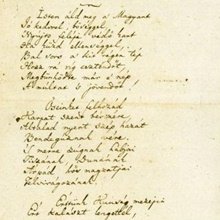 Isten áld meg a Magyart
Jó kedvvel, bőséggel,
Nyújts feléje védő kart
Ha küzd ellenséggel,
Bal sors a kit régen tép
Hozz rá víg esztendőt,
Megbűnhődte már e nép
A multat s jövendőt!
Őseinket felhozád
Kárpát szent bérczére,
Általad nyert szép hazát
Bendegúznak vére.
S merre zúgnak habjai
Tiszának, Dunának
Árpád hős magzatjai
Felvirágozának.
Értünk Kunság mezején
Ért kalászt lengettél,